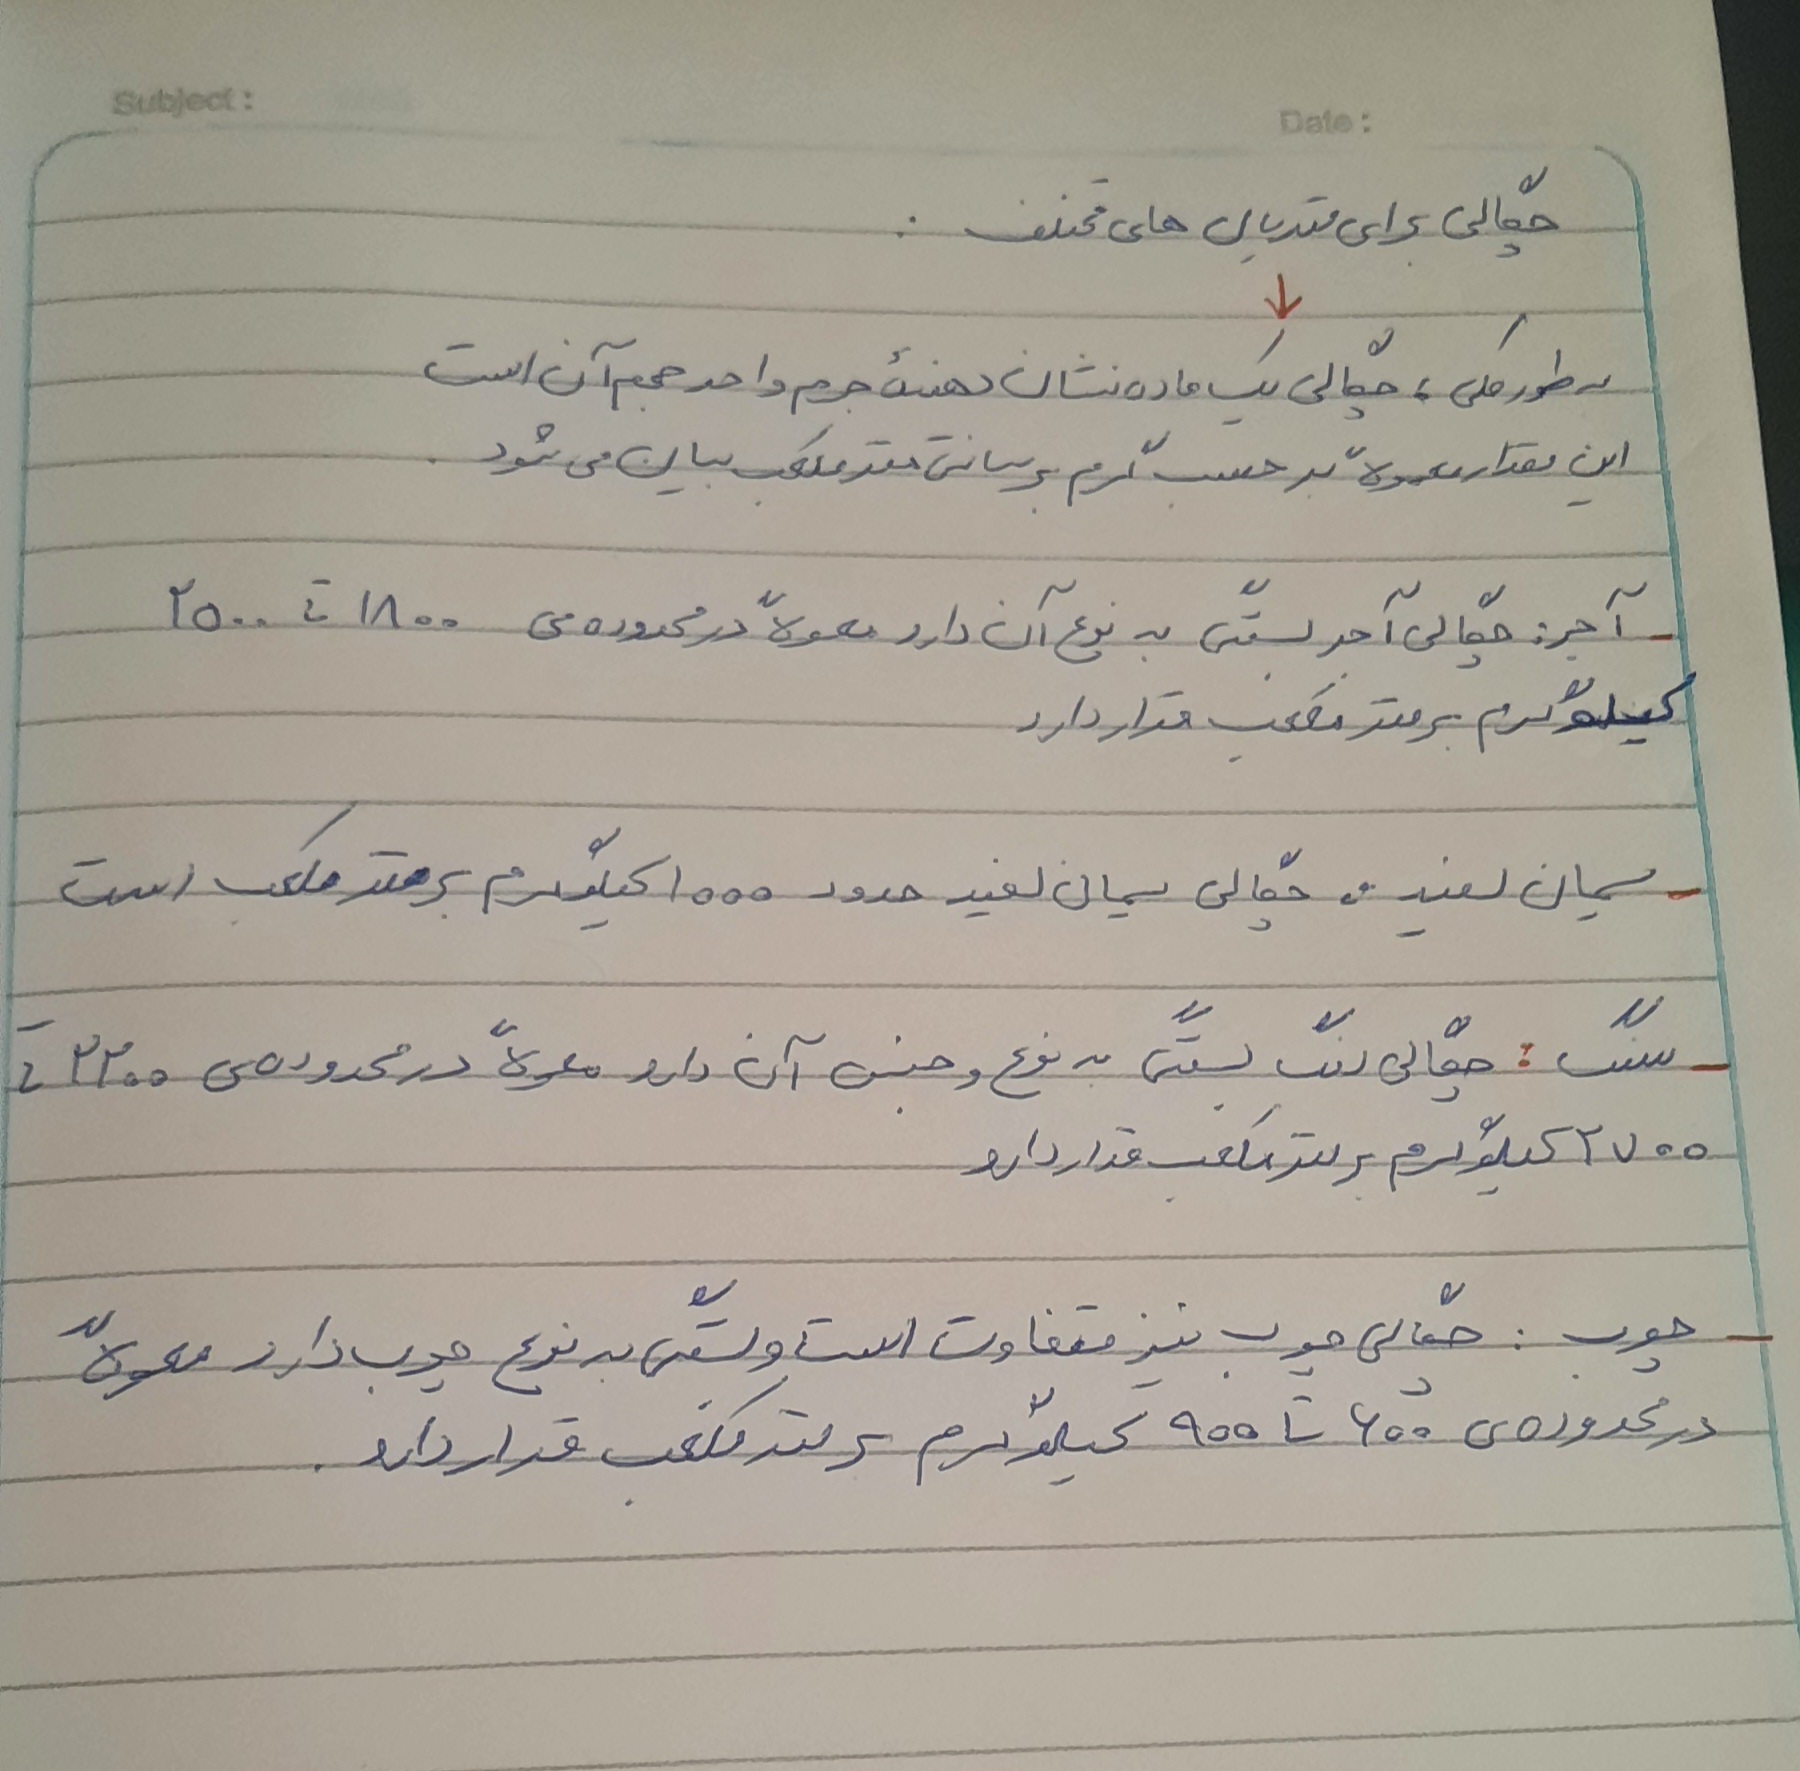 Subject :
Date :
چگالی برای متریال های مختلف :
به طور کلی ، چگالی یک ماده نشان دهندهٔ جرم واحد حجم آن است
این مقدار معمولاً بر حسب گرم بر سانتی متر مکعب بیان می شود .
- آجر : چگالی آجر بستگی به نوع آن دارد معمولاً در محدوده می ۱۸۰۰ تا ۲۵۰۰
کیلوگرم بر متر مکعب قرار دارد
- سیمان سفید : چگالی سیمان سفید حدود ۱۰۰۰ کیلوگرم بر متر مکعب است
- سنگ : چگالی سنگ بستگی به نوع و جنس آن دارد معمولاً در محدوده ی ۲۲۰۰ تا
۲۷۰۰ کیلوگرم بر متر مکعب قرار دارد
- چوب : چگالی چوب نیز متفاوت است و بستگی به نوع چوب دارد معمولاً
در محدوده ی ۶۰۰ تا ۹۰۰ کیلوگرم بر متر مکعب قرار دارد .